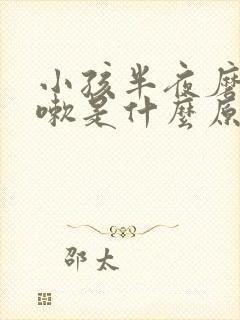 小孩半夜
嗽是什麼原
邵太